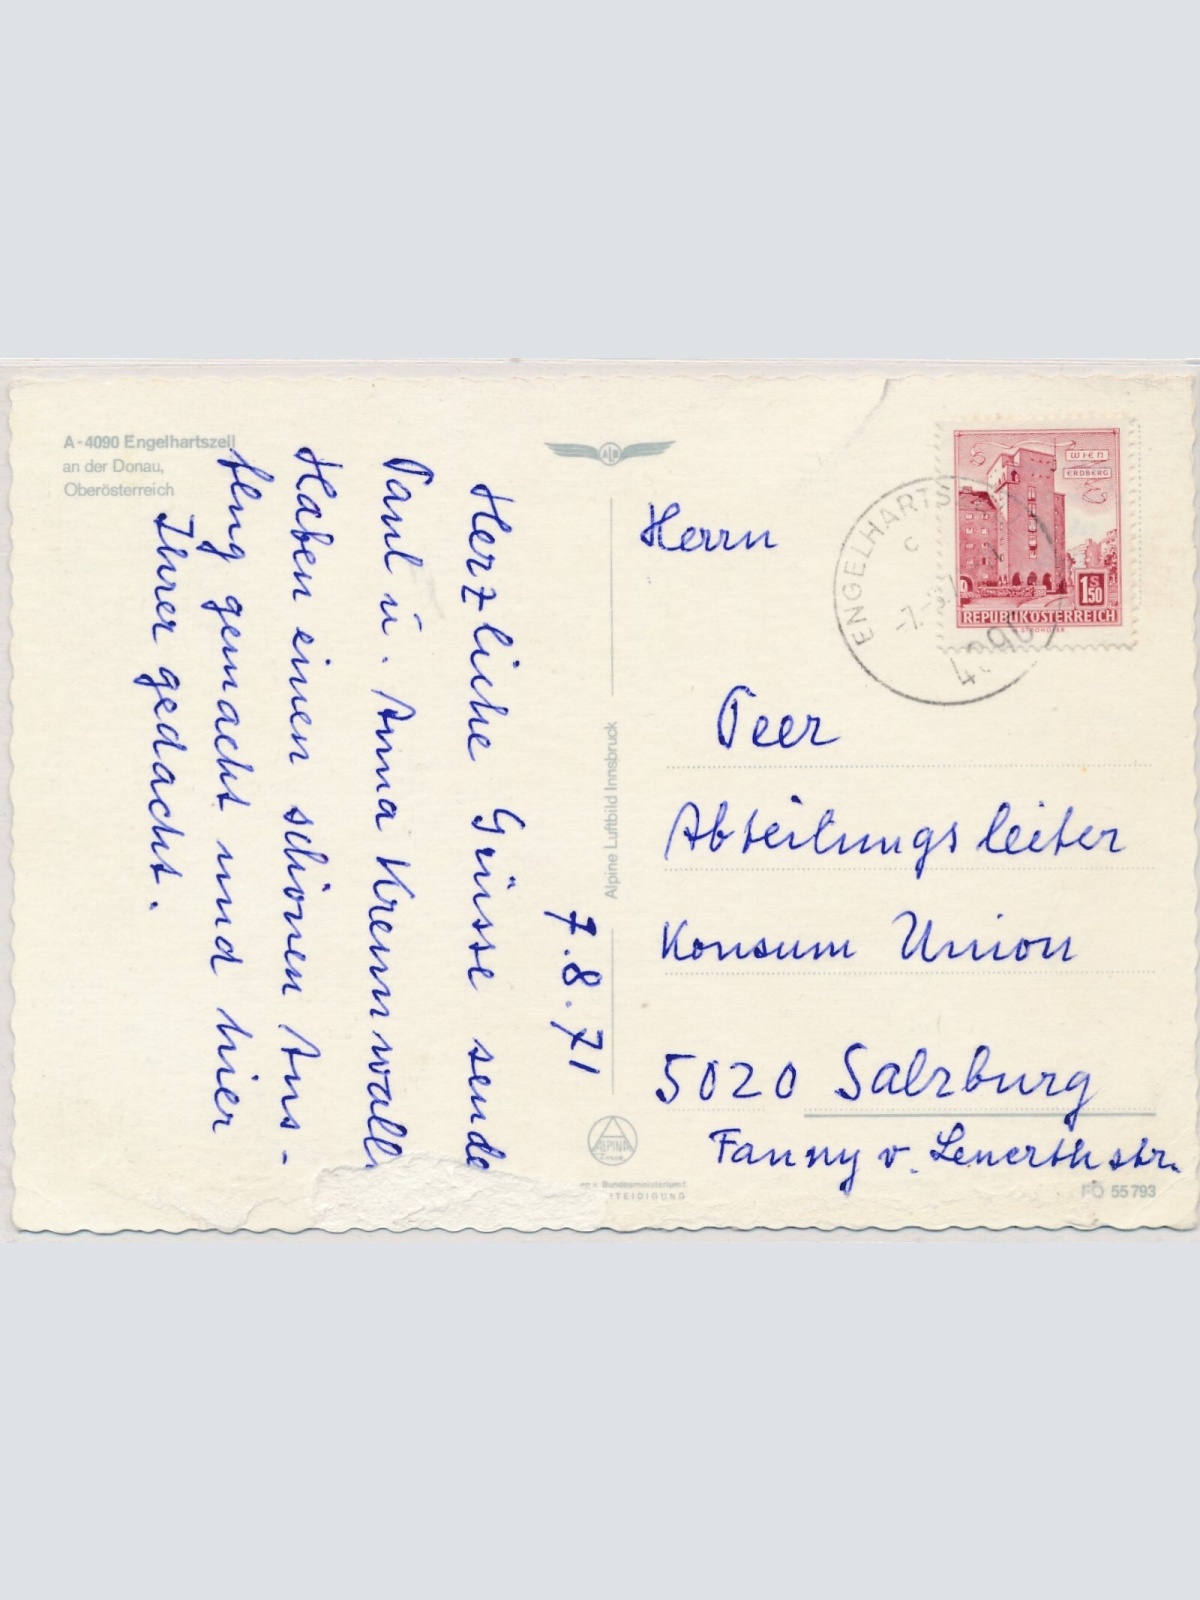 A-4090 Engelhartszell
an der Donau,
Oberösterreich
7.8.71
Herzliche Grüsse sende
Paul u. Anna Kremwall
Haben einen schönen Aus-
flug gemacht und hier
Ihrer gedacht.
Alpine Luftbild Innsbruck
ALPINA
Bundesministerium f.
TEIDIGUNG
WIEN
ERDBERG
1 S 50
REPUBLIK ÖSTERREICH
ENGELHARTS
4090
Herrn
Peer
Abteilungsleiter
Konsum Union
5020 Salzburg
Fanny v. Lenerthstr.
FO 55793